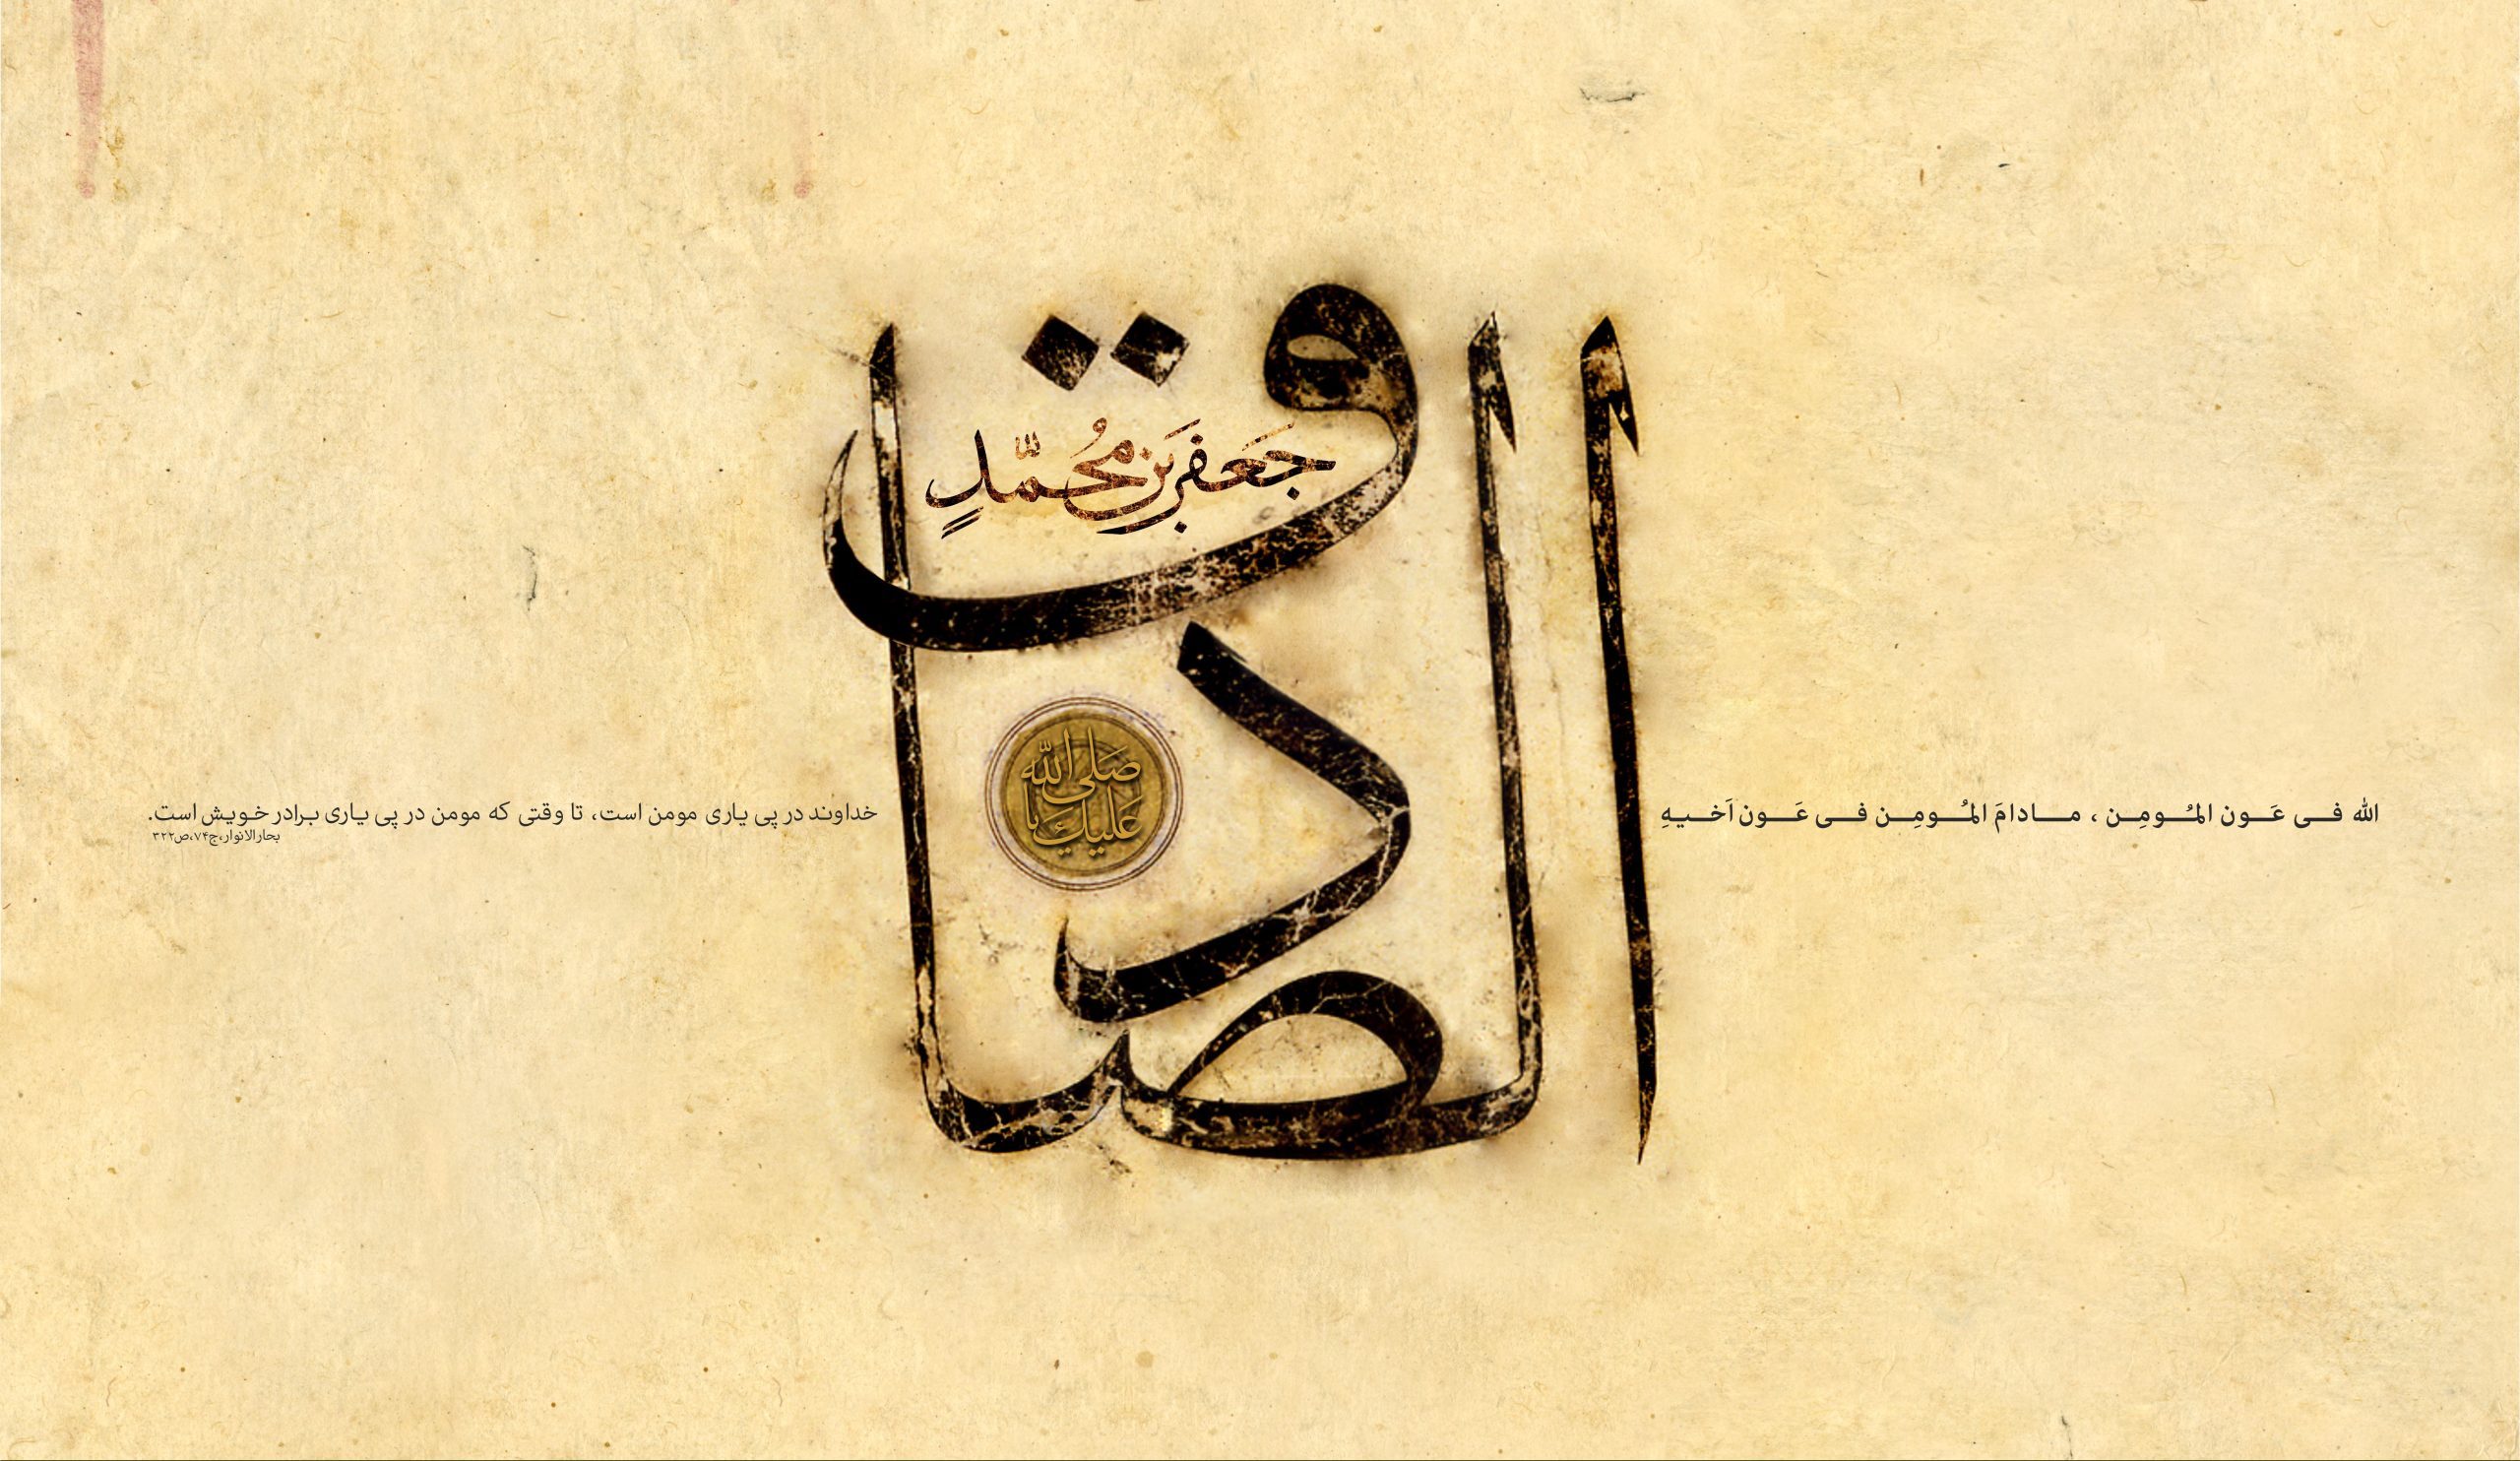 الصادق
جَعفَر بن مُحَمَّدٍ
صَلی الله
عَلیكَ یا
الله فـی عَـون المُـومِـن ، مـادامَ المُـومِـن فـی عَـون اَخـیـهِ
خداوند در پی یاری مومن است، تا وقتی که مومن در پی یاری برادر خویش است.
بحارالانوار،ج۷۴،ص۳۲۲